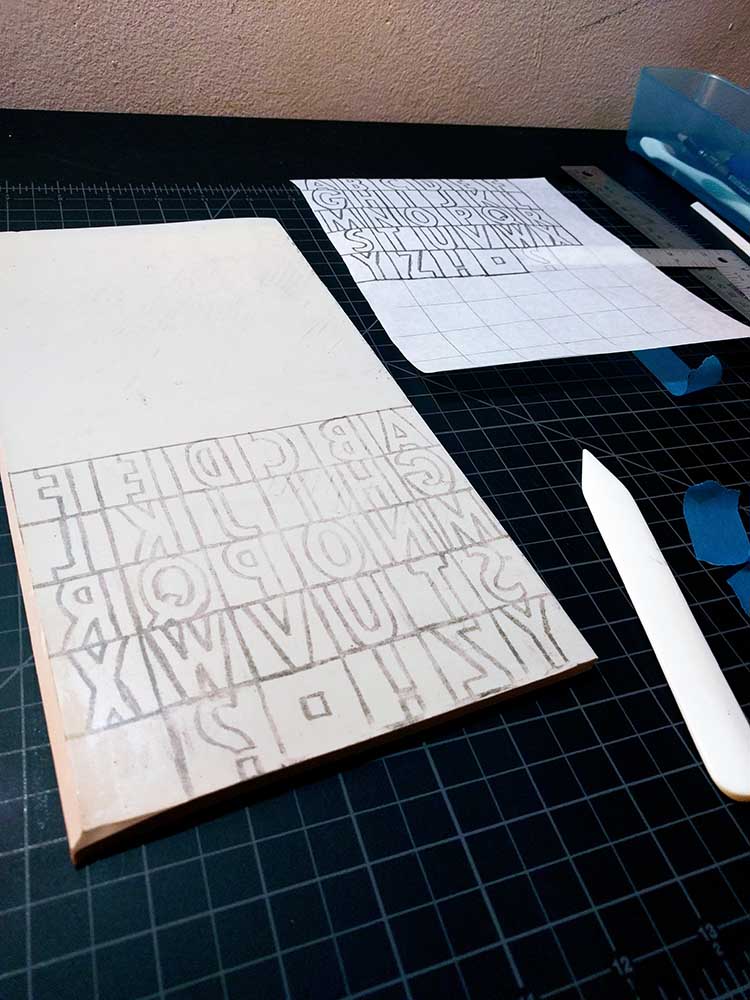 A B C D E F
G H I J K L
M N O P Q R
S T U V W X
Y Z ! . ?
A B C D E F
G H I J K L
M N O P Q R
S T U V W X
Y Z ! . ?
12 13